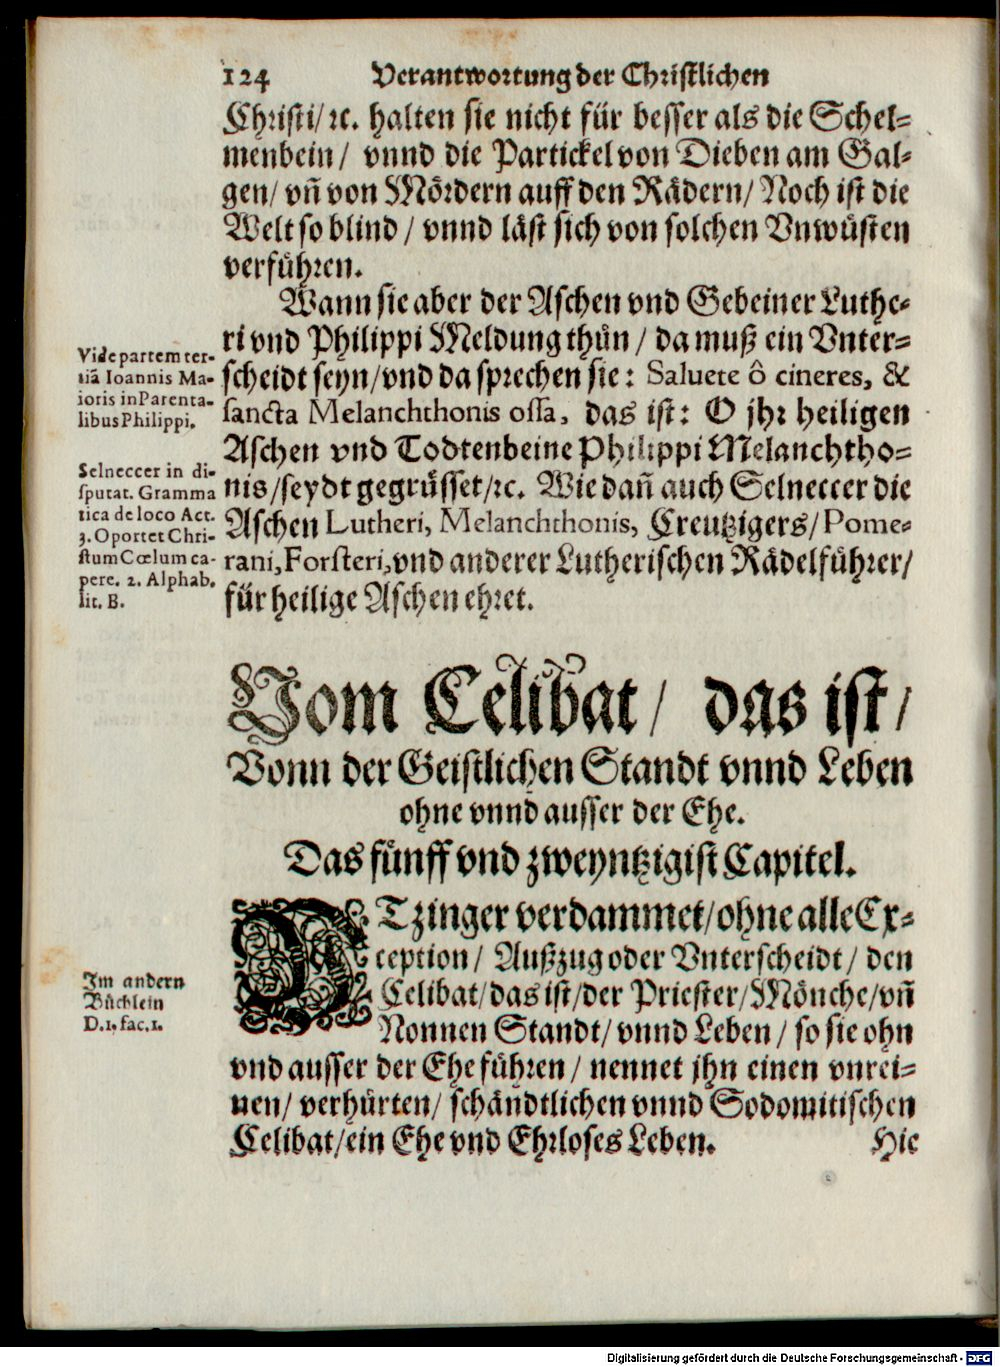 124 Verantwortung der Christlichen
Christi/ ꝛc. halten sie nicht für besser als die Schel-
menbein/ vnnd die Partickel von Dieben am Gal-
gen/ vñ von Mördern auff den Rädern/ Noch ist die
Welt so blind/ vnnd läst sich von solchen Vnwüsten
verführen.
Wann sie aber der Aschen vnd Gebeiner Luthe-
ri vnd Philippi Meldung thün/ da muß ein Vnter-
scheidt seyn/ vnd da sprechen sie: Saluete ô cineres, &
sancta Melanchthonis ossa, das ist: O jhr heiligen
Aschen vnd Todtenbeine Philippi Melanchtho-
nis/ seydt gegrüsset/ ꝛc. Wie dañ auch Selneccer die
Aschen Lutheri, Melanchthonis, Creutzigers/ Pome-
rani, Forsteri, vnd anderer Lutherischen Rädelführer/
für heilige Aschen ehret.
Vide partem ter-
tiã Ioannis Ma-
ioris in Parenta-
libus Philippi.
Selneccer in di-
sputat. Gramma
tica de loco Act.
3. Oportet Chri-
stum Cœlum ca-
pere. 2. Alphab.
lit. B.
Vom Celibat/ das ist/
Vonn der Geistlichen Standt vnnd Leben
ohne vnnd ausser der Ehe.
Das fünff vnd zweyntzigist Capitel.
OTzinger verdammet/ ohne alle Ex-
ception/ Außzug oder Vnterscheidt/ den
Celibat/ das ist/ der Priester/ Mönche/ vñ
Nonnen Standt/ vnnd Leben/ so sie ohn
vnd ausser der Ehe führen/ nennet jhn einen vnrei-
nen/ verhürten/ schändtlichen vnnd Sodomitischen
Celibat/ ein Ehe vnd Ehrloses Leben.
Hie
Im andern
Büchlein
D. 1. fac. 1.
Digitalisierung gefördert durch die Deutsche Forschungsgemeinschaft - DFG